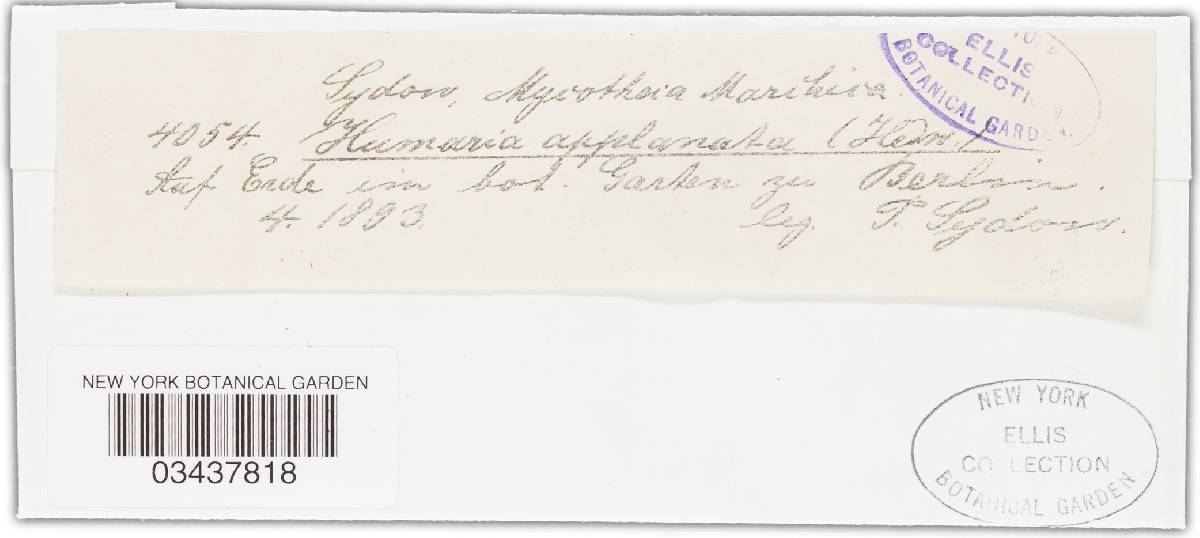 Sydow, Mycotheca Marchica.
4054. Humaria applanata (Hedw.)
Auf Erde im bot. Garten zu Berlin.
4. 1893. leg. P. Sydow.
YORK
ELLIS
COLLECTION
BOTANICAL GARDEN
NEW YORK BOTANICAL GARDEN
03437818
NEW YORK
ELLIS
COLLECTION
BOTANICAL GARDEN